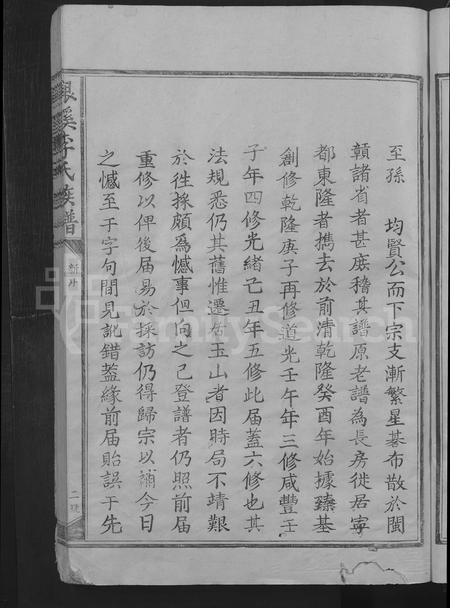 至孫　均賢公而下宗支漸繁星碁布散於閩
贛諸省者甚庶稽其譜原老譜為長房徙居寧
都東隆者擕去於前清乾隆癸酉年始據臻基
創修乾隆庚子再修道光壬午年三修咸豐壬
子年四修光緒己丑年五修此届蓋六修也其
法規悉仍其舊惟遷居玉山者因時局不靖艱
於徃採頗為憾事但向之已登譜者仍照前届
重修以俾後届易於採訪仍得歸宗以補今日
之憾至于字句間見訛錯葢緣前届貽誤于先
銀溪李氏族譜
新序
二
FamilySearch